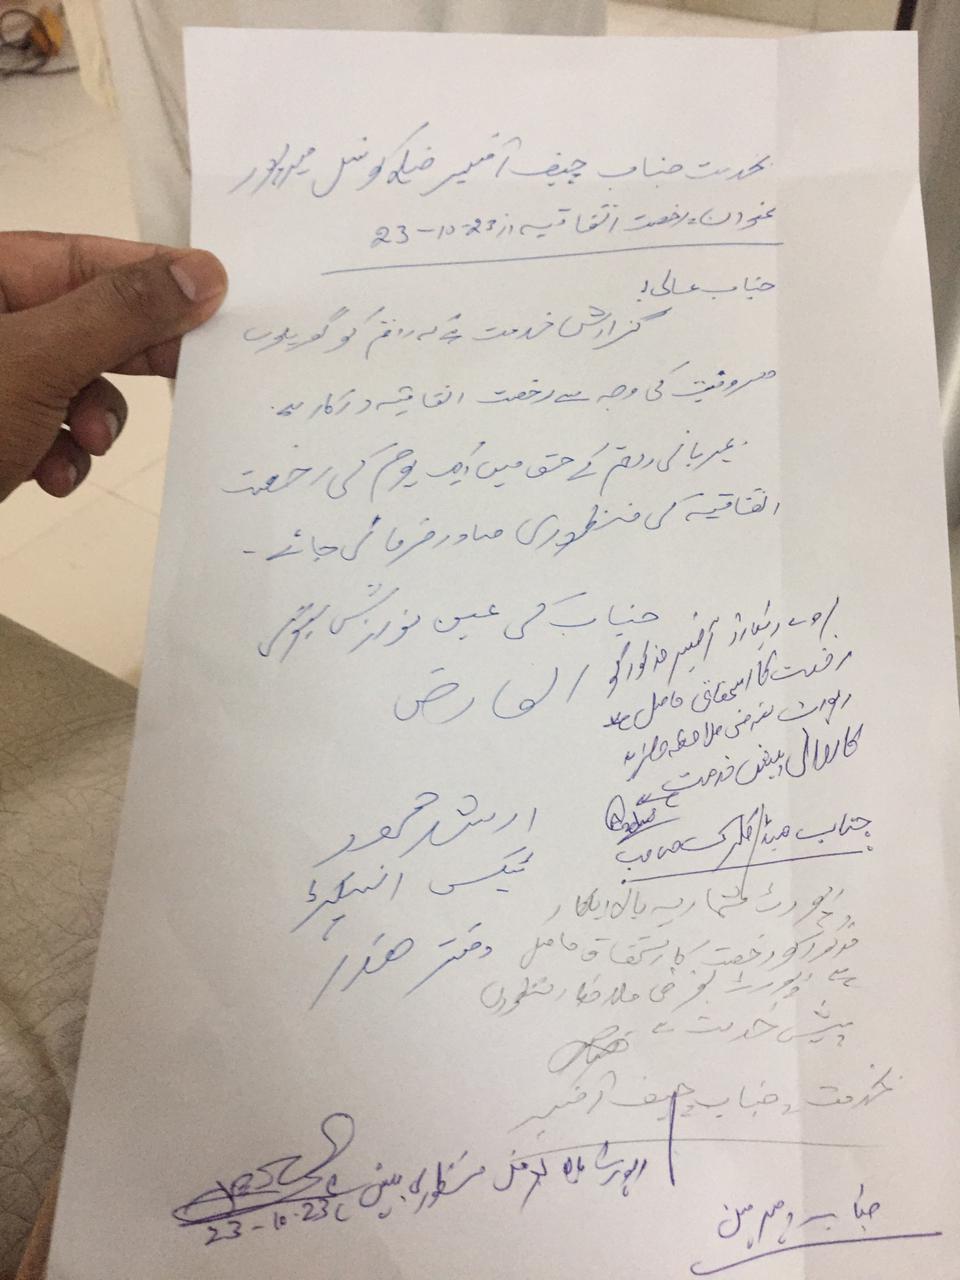 بخدمت جناب چیف آفیسر ضلع کونسل میرپور
عنوان:۔ رخصت اتفاقیہ از 23-10-23
جناب عالی!
گزارش خدمت ہے کہ راقم کو گھریلوں
مصروفیت کی وجہ سے رخصت اتفاقیہ درکار ہے۔
بمہربانی راقم کے حق میں ایک یوم کی رخصت
اتفاقیہ کی منظوری صادر فرمائی جائے۔
جناب کی عین نوازش ہوگی
العارض
ارشد محمود
ٹیکس انسپکٹر
دفتر ھذا
بروئے ریکارڈ آفیسر مذکور کو
رخصت کا استحقاق حاصل ہے
رپورٹ بغرض ملاحظہ
کاروائی پیش خدمت ہے
جناب ہیڈ کلرک صاحب
رپورٹ بالا ریکارڈ
مذکور کو رخصت کا استحقاق حاصل
ہے رپورٹ بغرض ملاحظہ منظوری
پیش خدمت ہے
بخدمت جناب چیف آفیسر
رپورٹ بالا بغرض منظوری پیش ہے
23-10-23
جناب چیئرمین